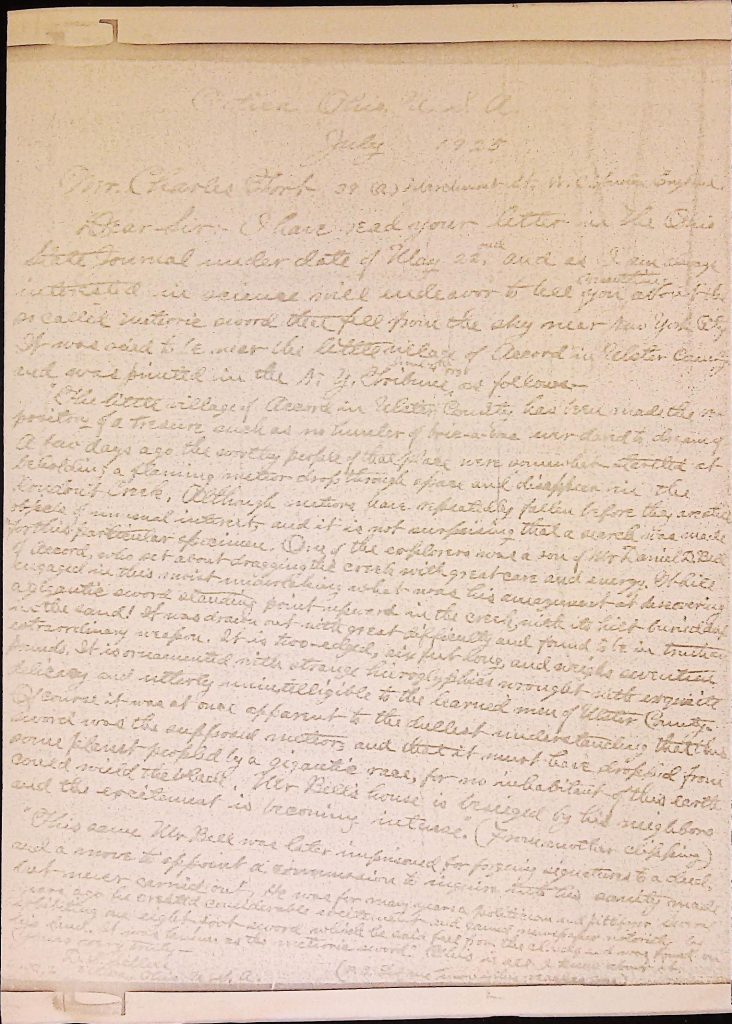 Ohio, U. S. A.
July 1925
Mr. Charles Fort, 39 (A) Marchmont St. W. C. England.
Dear Sir:- I have read your letter in the Ohio
State Journal under date of May 22, and as I am
interested in science will endeavor to tell you something about the
so called meteoric sword that fell from the sky near New York City
It was said to be near the little village of Accord in Ulster County
and was printed in the N. Y. Tribune as follows-
"The little village of Accord in Ulster County has been made the re-
pository of a treasure such as no hunter of bric-a-brac ever dared to dream of
A few days ago the worthy people of that place were somewhat startled at
beholding a flaming meteor drop through space and disappear in the
Rondout Creek. Although meteors have repeatedly fallen before they are still
objects of unusual interest, and it is not surprising that a search was made
for this particular specimen. One of the explorers was a son of Mr Daniel D. Bell
of Accord, who set about dragging the creek with great care and energy. While
engaged in this moist undertaking what was his amazement at discovering
a gigantic sword standing point upward in the creek with its hilt buried deep
in the sand! It was drawn out with great difficulty and found to be in truth an
extraordinary weapon. It is two-edged, six feet long, and weighs seventeen
pounds. It is ornamented with strange hieroglyphics wrought with exquisite
delicacy and utterly unintelligible to the learned men of Ulster County.
Of course it was at once apparent to the dullest understanding that this
sword was the supposed meteor, and that it must have dropped from
some planet peopled by a gigantic race, for no inhabitant of this earth
could wield the blade. Mr Bell's house is besieged by his neighbors
and the excitement is becoming intense." (From another clipping)
"This same Mr. Bell was later imprisoned for forging signatures to a deed,
and a move to appoint a commission to inquire into his sanity made
but never carried out. He was for many years a politician and
years ago he created considerable excitement and gained newspaper notoriety by
exhibiting an eight foot sword which he said fell from the clouds and was found on
his land. It was known as the meteoric sword." This is all I know about it.
Yours very truly-
Ohio, U. S. A.